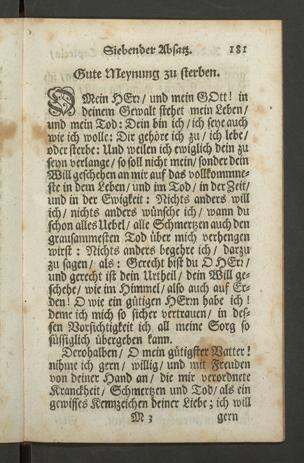 Siebender Absatz. 181
Gute Meynung zu sterben.
O Mein HErr/ und mein GOtt! in
deinem Gewalt stehet mein Leben/
und mein Tod: Dein bin ich/ ich seye auch
wie ich wolle: Dir gehöre ich zu/ ich lebe/
oder sterbe: Und weilen ich ewiglich dein zu
seyn verlange/ so soll nicht mein/ sonder dein
Will geschehen an mir auf das vollkommne-
ste in dem Leben/ und im Tod/ in der Zeit/
und in der Ewigkeit: Nichts anders will
ich/ nichts anders wünsche ich/ wann du
schon alles Uebel/ alle Schmertzen auch den
grausammesten Tod über mich verhengen
wirst: Nichts anders begehre ich/ darzu
zu sagen/ als: Gerecht bist du O HErr/
und gerecht ist dein Urtheil/ dein Will ge-
schehe/ wie im Himmel/ also auch auf Er-
den! O wie ein gütigen HErrn habe ich!
deme ich mich so sicher vertrauen/ in des-
sen Vorsichtigkeit ich all meine Sorg so
süssiglich übergeben kann.
Derohalben/ O mein gütigster Vatter!
nihme ich gern/ willig/ und mit Freuden
von deiner Hand an/ die mir verordnete
Kranckheit/ Schmertzen und Tod/ als ein
gewisses Kennzeichen deiner Liebe; ich will
M 3 gern